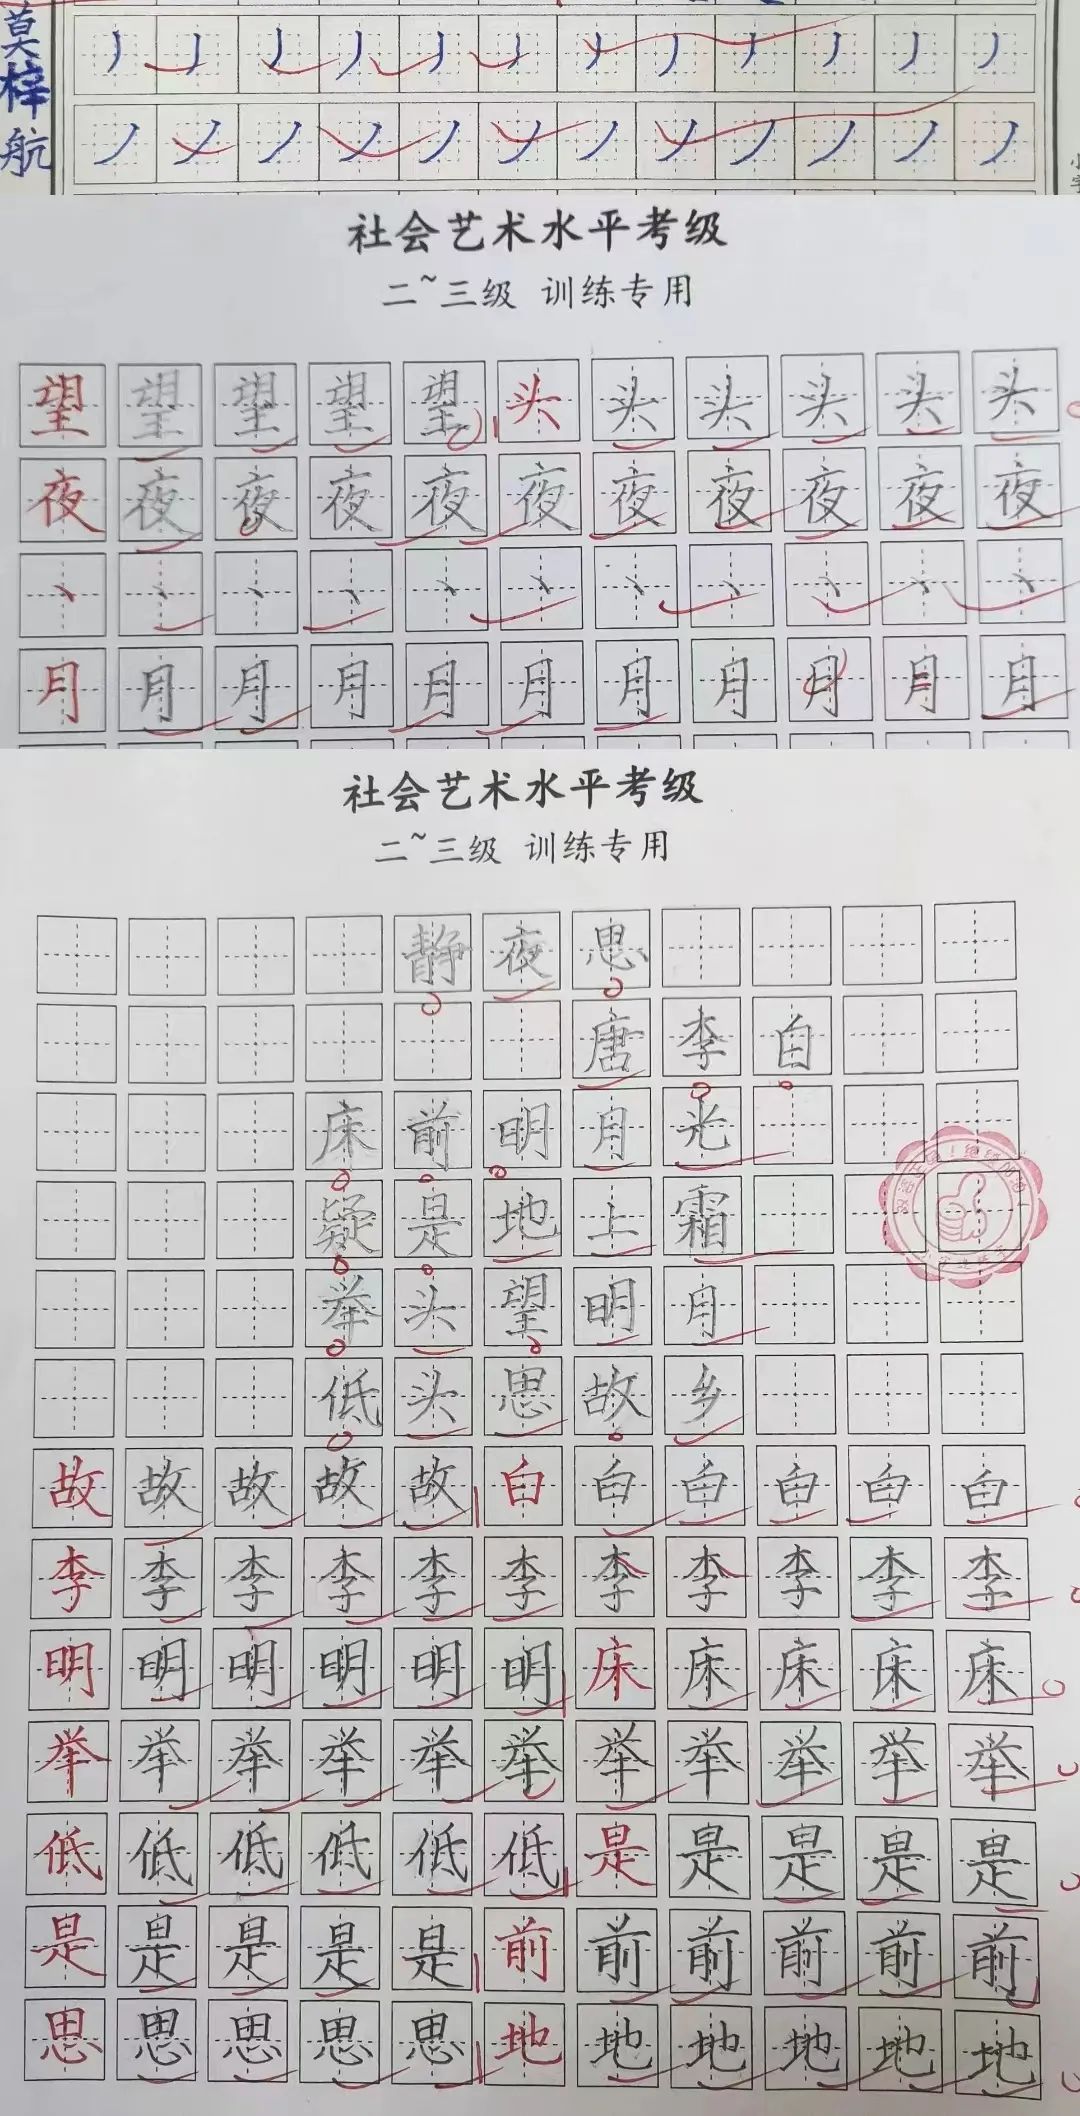 莫梓航
丿丿丿丿丿丿丿丿丿丿丿丿
丿丿丿丿丿丿丿丿丿丿丿丿
社会艺术水平考级
二~三级 训练专用
望望望望望头头头头头头
夜夜夜夜夜夜夜夜夜夜夜
月月月月月月月月月月月
社会艺术水平考级
二~三级 训练专用
静夜思
唐李白
床前明月光
疑是地上霜
举头望明月
低头思故乡
故故故故故白白白白白白
李李李李李李李李李李李
明明明明明明床床床床床
举举举举举举举举举举举
低低低低低低是是是是是
是是是是是前前前前前前
思思思思思地地地地地地